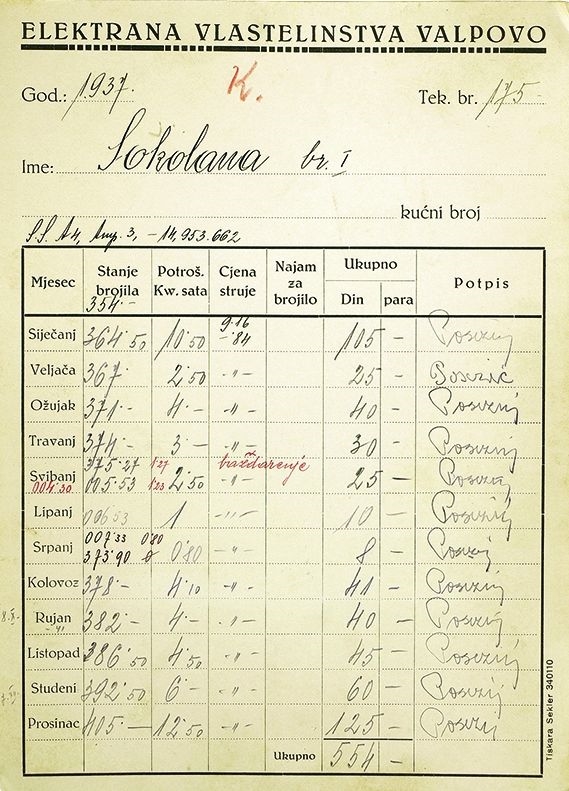 ELEKTRANA VLASTELINSTVA VALPOVO
God.: 1937. K. Tek. br. 175
Ime: Sokolana br. I
kućni broj
3, - 14,953.662
Mjesec Stanje brojila Potroš. Kw. sata Cjena struje Najam za brojilo Ukupno Din para Potpis
354.-
Siječanj 364 50 10 50 9.16 -.84 105 -
Veljača 367.- 2 50 -"- 25 -
Ožujak 371.- 4.- -"- 40 -
Travanj 374.- 3 - -"- 30 -
375.27 1.27 baždarenje
Svibanj 005.53 1.23 2 50 25 -
004.30
Lipanj 006 53 1 -"- 10 -
007.33 0.80
Srpanj 373.90 0 0.80 -"- 8 -
Kolovoz 378.- 4 10 -"- 41 -
Rujan 382.- 4.- -"- 40 -
Listopad 386 50 4 50 -"- 45 -
Studeni 392 50 6 - -"- 60 -
Prosinac 405.- 12 50 -"- 125 -
Ukupno 554 -
Tiskara Sekler 340110